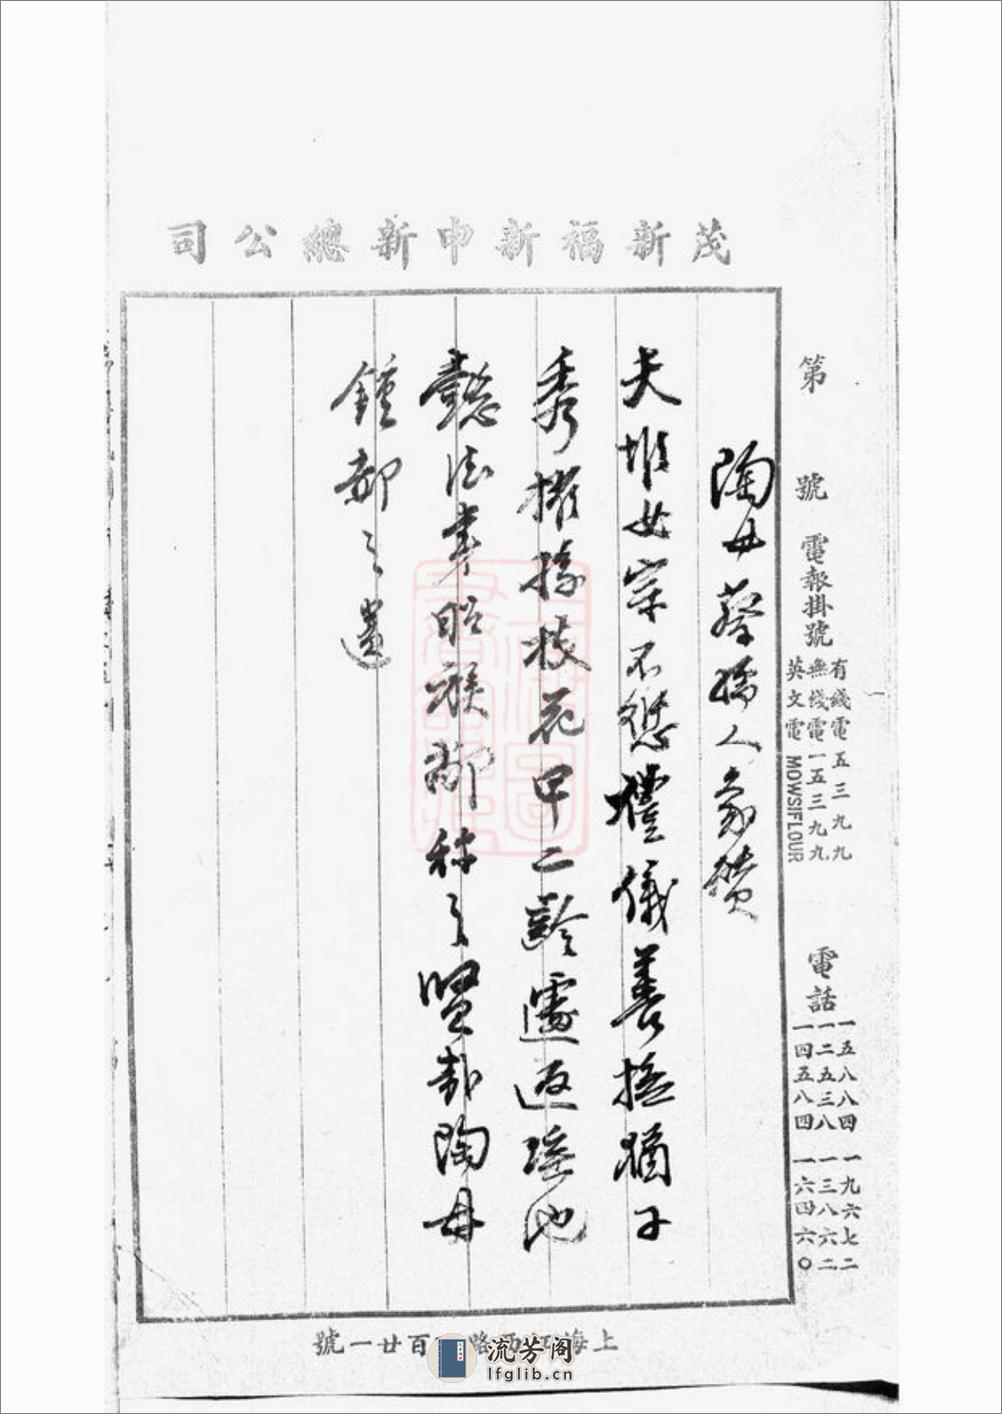 茂新福新申新總公司
第 號
電報掛號
有綫電五三九九
無綫電一五三九九
英文電 MOWSIFLOUR
電話
一五八八四 一九六七二
一二五三八 一三八六二
一四五八四 一六四六〇
陶母蔡孺人象贊
夫唯女宗不愆禮儀善撫猶子
秀擢孫枝花甲二齡遽返瑤池
懿法聿昭族鄰稱之賢哉陶母
鍾郝之遺
上海江西路 百廿一號
流芳阁
lfglib.cn